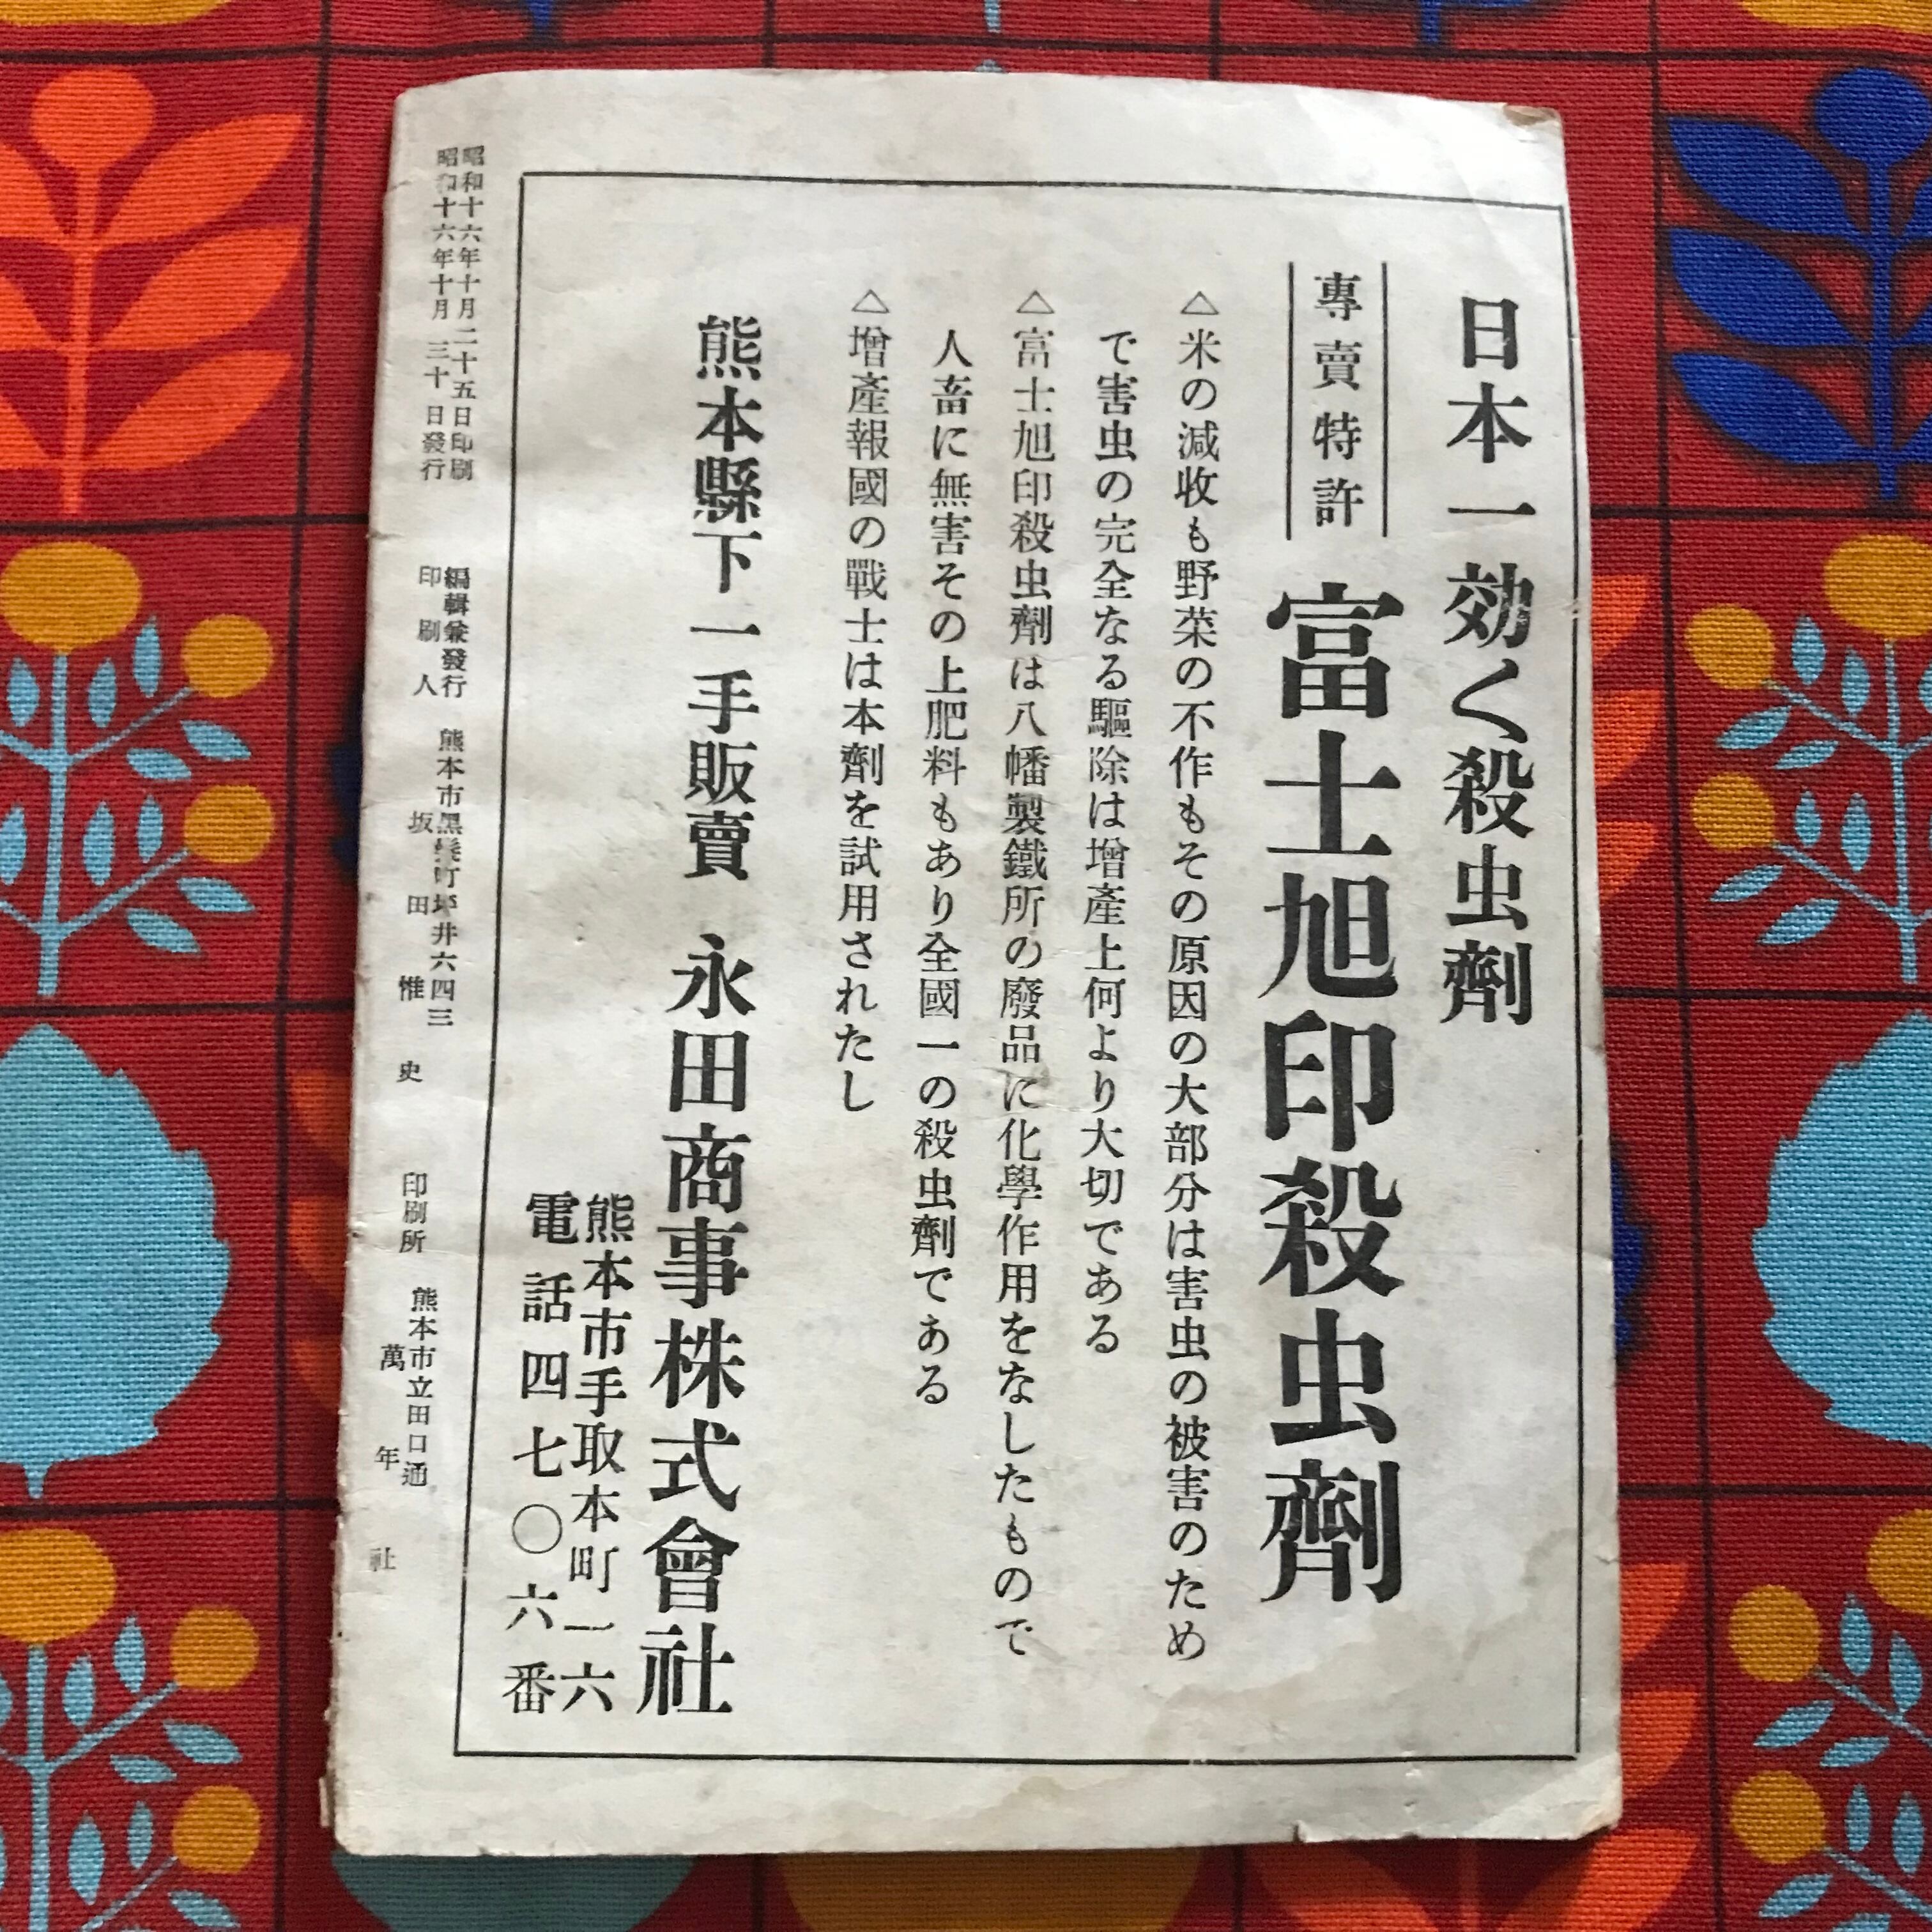 日本一効く殺虫劑
專賣特許
富士旭印殺虫劑
△米の減收も野菜の不作もその原因の大部分は害虫の被害のため
で害虫の完全なる驅除は增產上何より大切である
△富士旭印殺虫劑は八幡製鐵所の廢品に化學作用をなしたもので
人畜に無害その上肥料もあり全國一の殺虫劑である
△增產報國の戰士は本劑を試用されたし
熊本縣下一手販賣 永田商事株式會社
熊本市手取本町一六
電話四七〇六番
昭和十六年十月二十五日印刷
昭和十六年十月三十日發行
編輯兼發行
印刷人
熊本市黑髮町坪井六四三
坂田惟史
印刷所
熊本市立田口通
萬年社